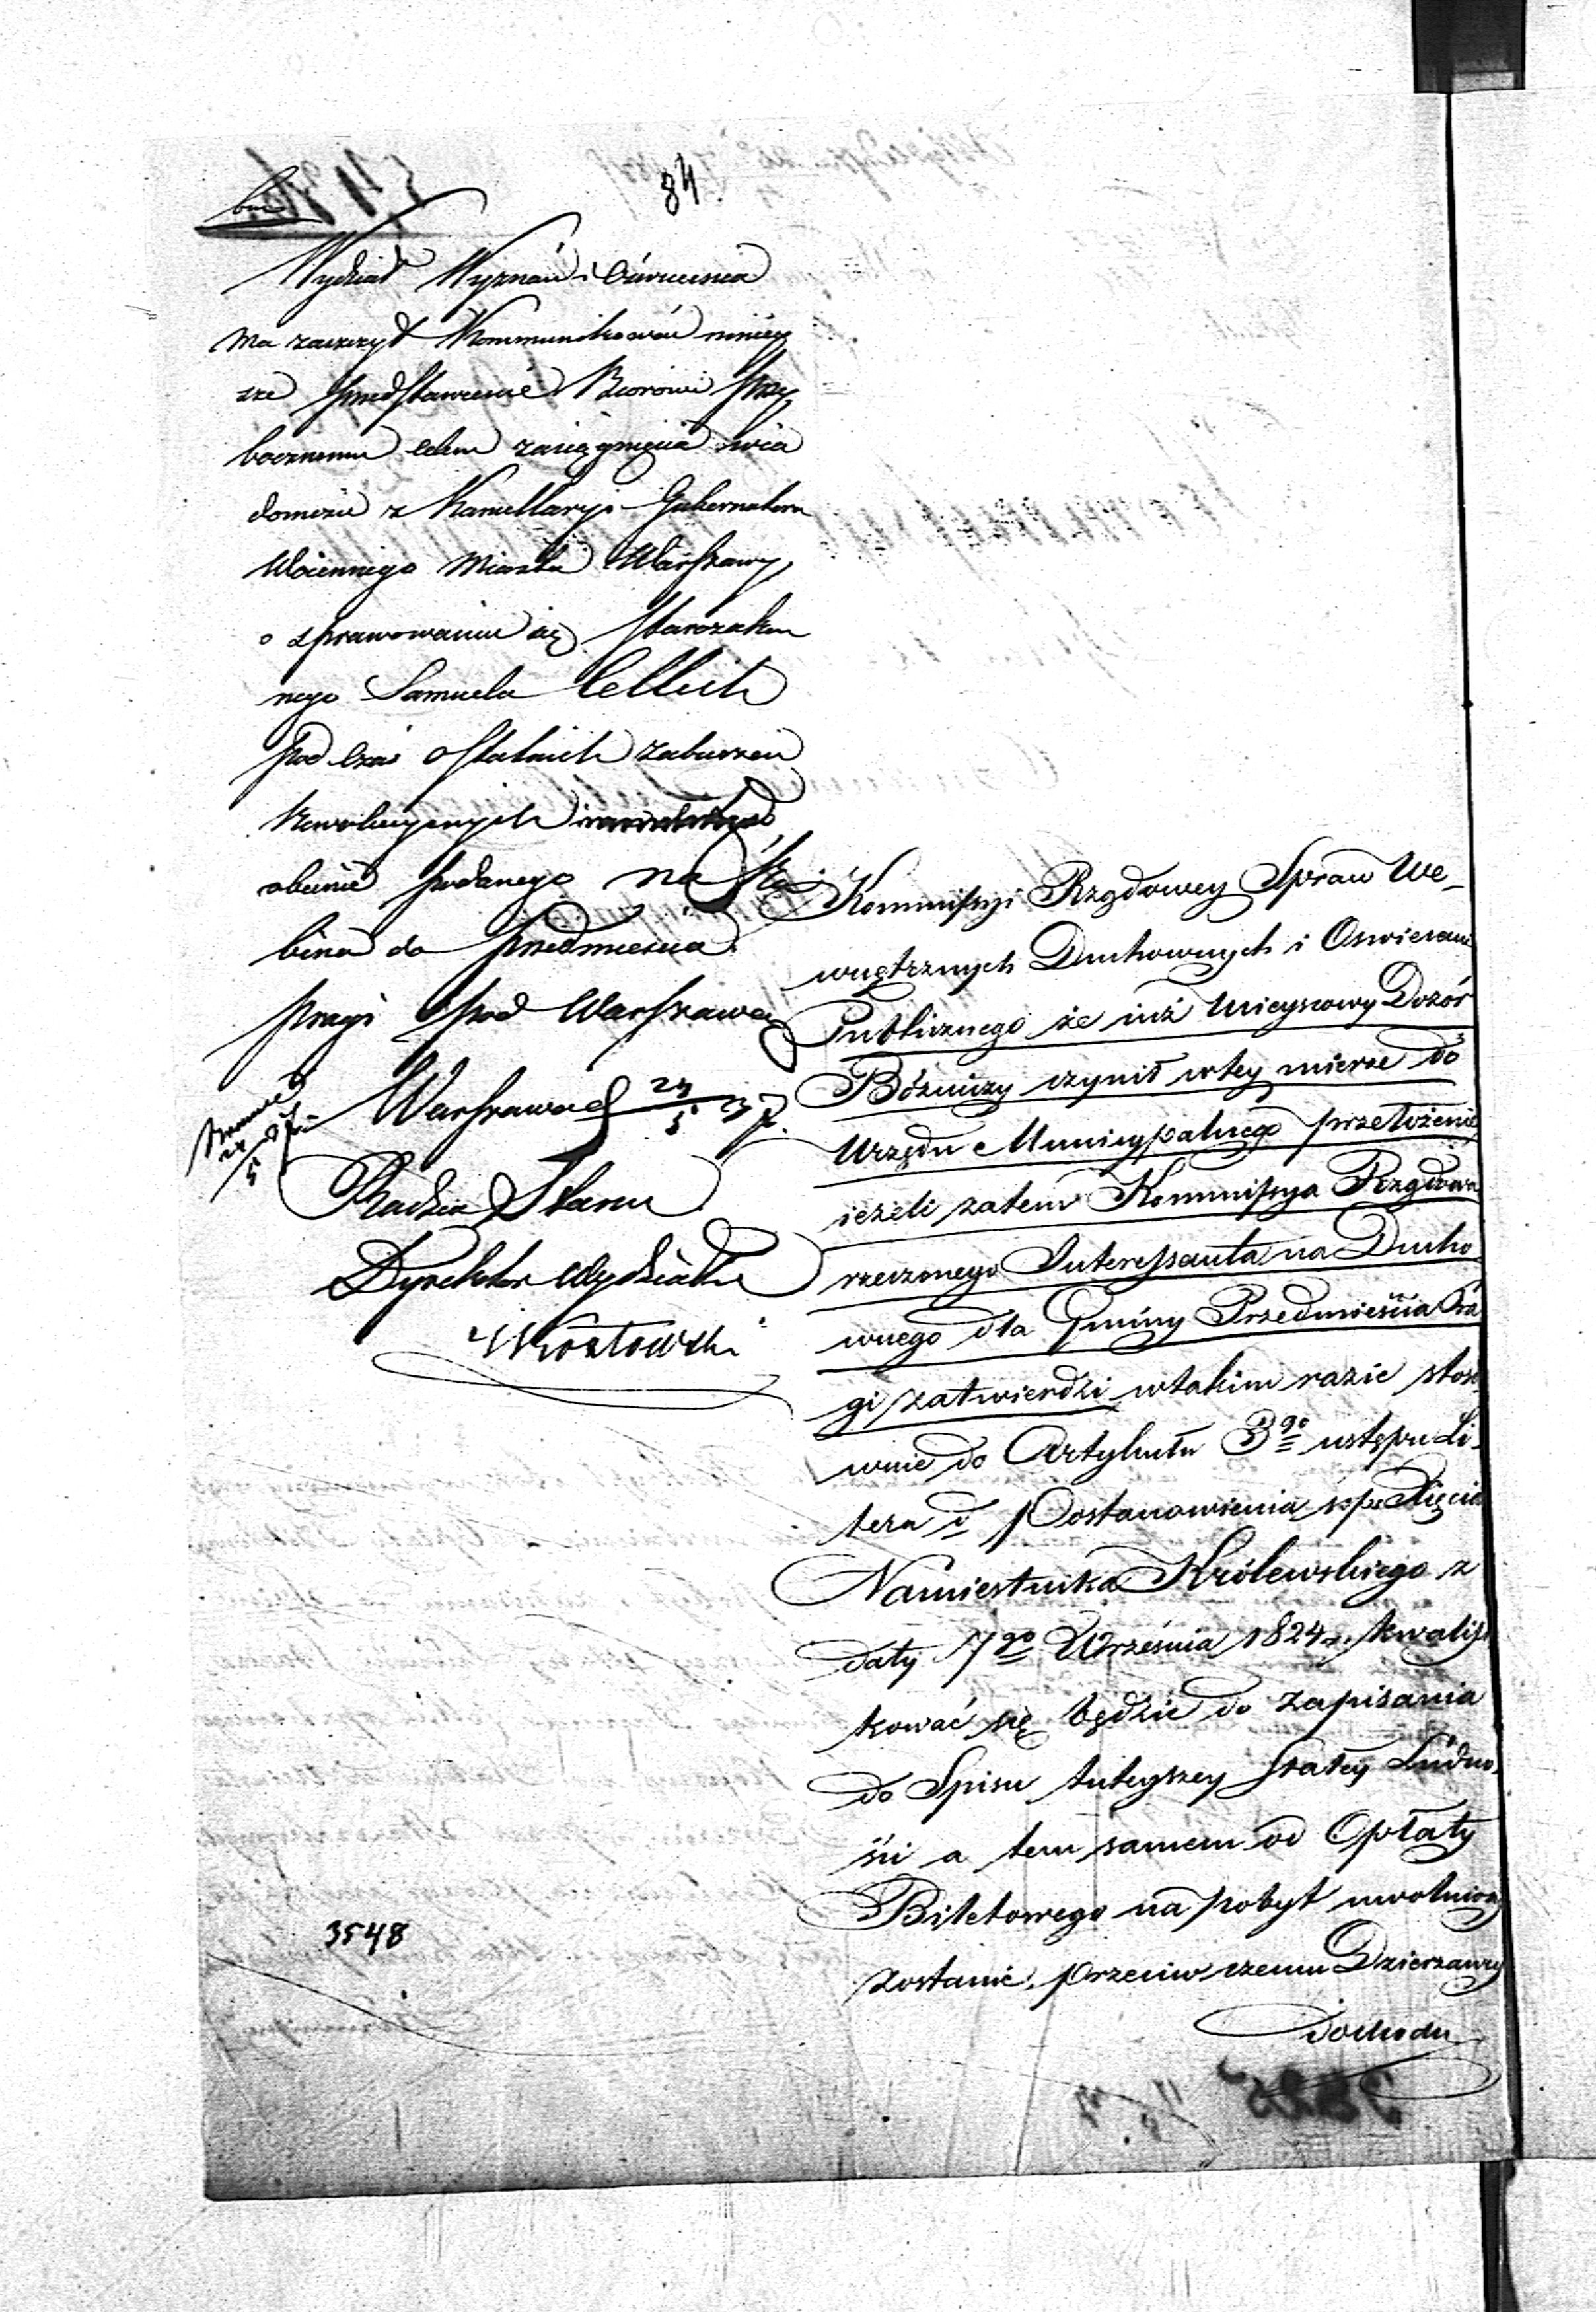 84
Wydział Wyznań i Oświecenia
ma zaszczyt Kommunikować niniey
sze przedstawienie Biorowi Przy
bocznemu celem zasiągnięcia wia
domości z Kancellaryi Gubernatora
Woiennego Miasta Warszawy,
o sprawowaniu się Starozakon
nego Samuela
podczas ostatnich zaburzeń
Rewolucyjnych
obecnie podanego na Ra
bina do przedmieścia
Pragi pod Warszawą
Warszawa d 24/5
Radzca Stanu
Dyrektor Wydziału
3548
Kommissyi Rządowey Spraw We-
wnętrznych Duchownych i Oswiecenia
Publicznego że iuż Mieyscowy Dozór
Bóżniczy czynił w tey mierze do
Urzędu Municypalnego przełożenie
ieżeli zatem Kommissya Rządowa
rzeczonego Interessanta na Ducho
wnego dla Gminy Przedmieścia Pra
gi zatwierdzi w takim razie stoso
wnie do Artykułu 3go ustępu Li-
tera d Postanowienia Xięcia
Namiestnika Królewskiego z
daty 7go Września 1824 r. kwalifi
kować się będzie do zapisania
do Spisu tuteyszey stałey Ludno-
ści a tem samem od Opłaty
Biletowego na pobyt uwolniony
zostanie, przeciw czemu Dzierżawcy
Dochodu